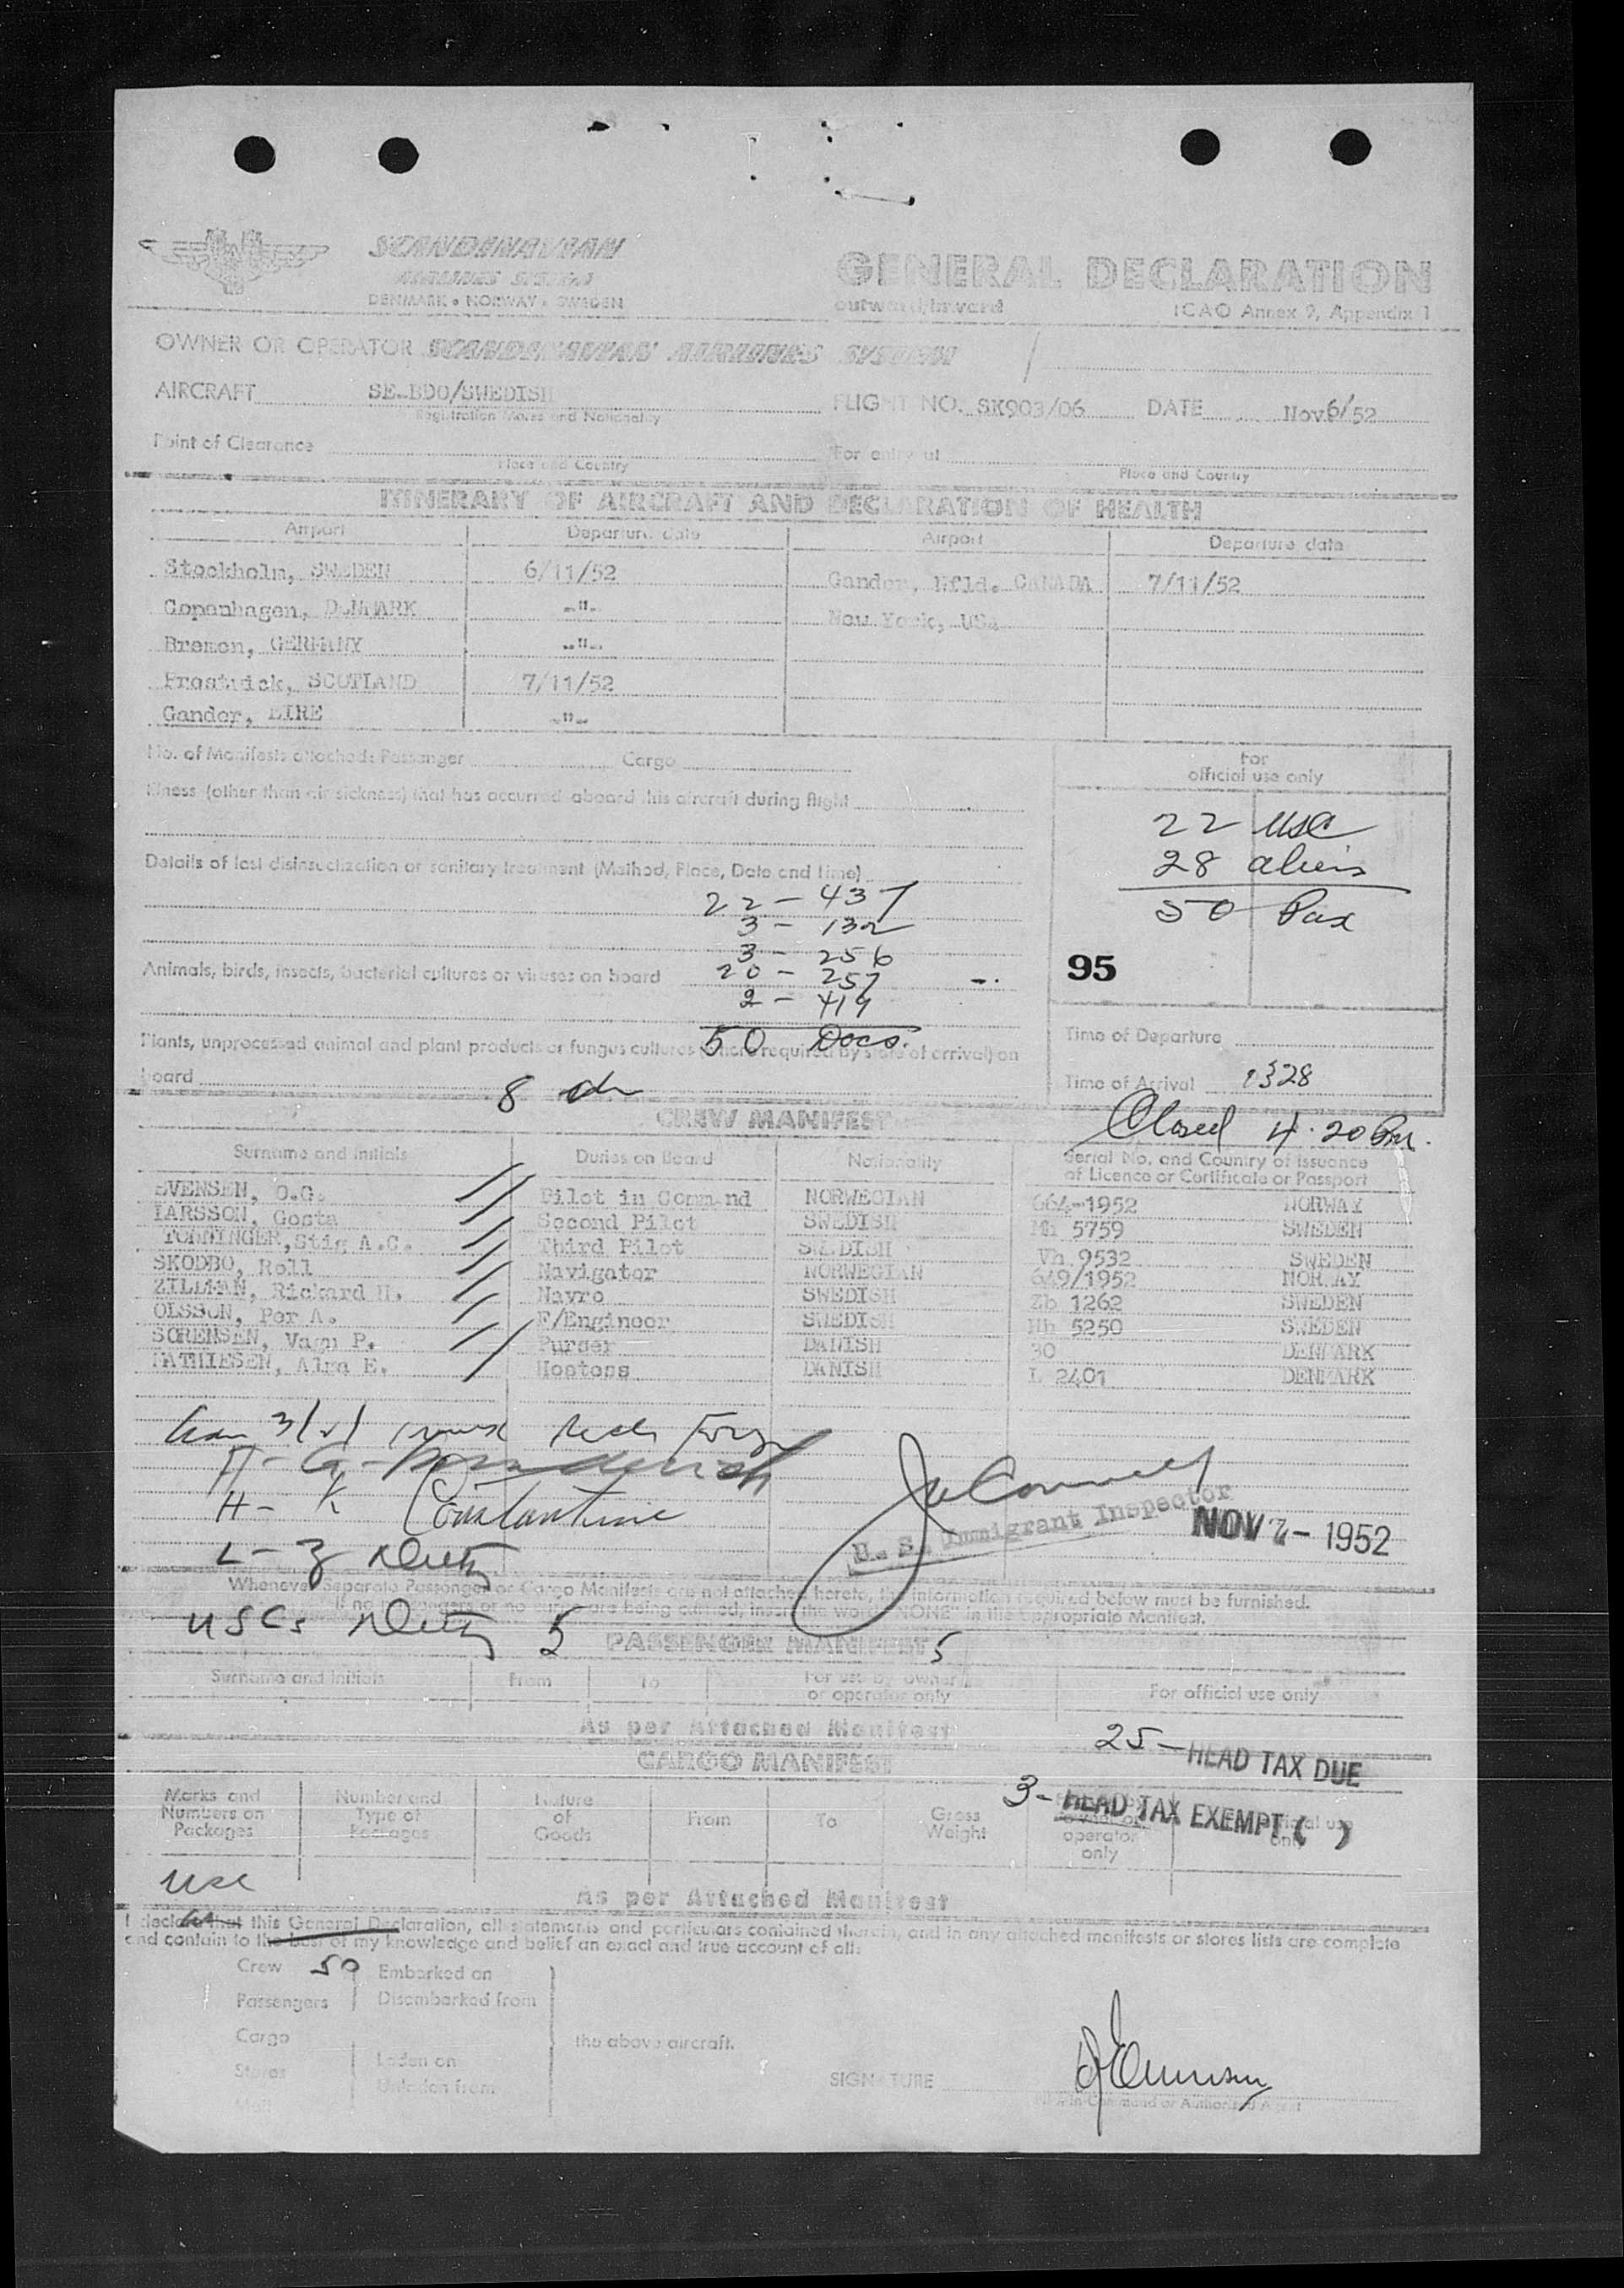 SCANDINAVIAN
AIRLINES SYSTEM
DENMARK • NORWAY • SWEDEN
GENERAL DECLARATION
outward/inward
ICAO Annex 9, Appendix 1
OWNER OR OPERATOR SCANDINAVIAN AIRLINES SYSTEM
AIRCRAFT SE-BDO/SWEDISH FLIGHT NO. SK903/06 DATE Nov 6/52
Registration Marks and Nationality
Point of Clearance For entry at
Place and Country Place and Country
ITINERARY OF AIRCRAFT AND DECLARATION OF HEALTH
Airport Departure date Airport Departure date
Stockholm, SWEDEN 6/11/52 Gander, Nfld. CANADA 7/11/52
Copenhagen, DENMARK -"- New York, USA
Bremen, GERMANY -"-
Prestwick, SCOTLAND 7/11/52
Gander, EIRE -"-
No. of Manifests attached: Passenger Cargo
For
official use only
Illness (other than air sickness) that has occurred aboard this aircraft during flight
22 USC
28 aliens
50 Pax
Details of last disinsectization or sanitary treatment (Method, Place, Date and time)
22 - 437
3 - 132
3 - 256
Animals, birds, insects, bacterial cultures or viruses on board 20 - 257
2 - 419
50 Docs.
95
Plants, unprocessed animal and plant products or fungus cultures (where required by state of arrival) on
board
Time of Departure
Time of Arrival 1328
8
Closed 4:20 Pm.
CREW MANIFEST
Surname and initials Duties on Board Nationality Serial No. and Country of issuance
of Licence or Certificate or Passport
SVENSEN, O.G. Pilot in Command NORWEGIAN 664-1952 NORWAY
LARSSON, Gosta Second Pilot SWEDISH Mh 5759 SWEDEN
TORNINGER, Stig A.C. Third Pilot SWEDISH Vh 9532 SWEDEN
SKODBO, Roll Navigator NORWEGIAN 649/1952 NORWAY
ZILLMAN, Rickard H. Navro SWEDISH Zb 1262 SWEDEN
OLSSON, Per A. F/Engineer SWEDISH Hh 5250 SWEDEN
SORENSEN, Vagn P. Purser DANISH 30 DENMARK
MATHIESEN, Alma E. Hostess DANISH L 2401 DENMARK
H - K Constantine
U. S. Immigrant Inspector
NOV 7 - 1952
L - Z
Whenever Separate Passenger or Cargo Manifests are not attached hereto, the information required below must be furnished.
If no passengers or no cargo are being carried, insert the word "NONE" in the appropriate Manifest.
USCs 5
PASSENGER MANIFEST 5
Surname and initials From To For use by owner
or operator only For official use only
As per Attached Manifest
25 - HEAD TAX DUE
CARGO MANIFEST
3 - HEAD TAX EXEMPT ( )
Marks and
Numbers on
Packages
Number and
Type of
Packages
Nature
of
Goods
From To Gross
Weight
operator
only
official use
only
USC
As per Attached Manifest
I declare that this General Declaration, all statements and particulars contained therein, and in any attached manifests or stores lists are complete
and contain to the best of my knowledge and belief an exact and true account of all:
Crew 50 Embarked on
Passengers Disembarked from
Cargo the above aircraft.
Stores Laden on
Unladen from
Mail
SIGNATURE
Pilot-in-Command or Authorised Agent